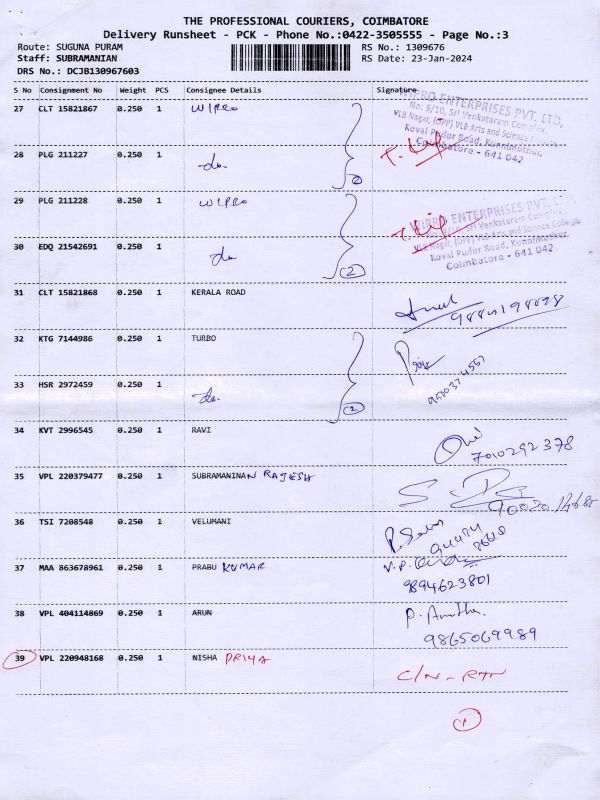 THE PROFESSIONAL COURIERS, COIMBATORE
Delivery Runsheet - PCK - Phone No.:0422-3505555 - Page No.:3
Route: SUGUNA PURAM RS No.: 1309676
Staff: SUBRAMANIAN RS Date: 23-Jan-2024
DRS No.: DCJB130967603
S No Consignment No Weight PCS Consignee Details Signature
27 CLT 15821867 0.250 1 WIPRO
WIPRO ENTERPRISES PVT. LTD,
No: 9/10, Sri Venkataram Complex,
VLB Nagar, (OPP) VLB Arts and Science College,
Kovai Pudur Road, Kunnimuthur,
Coimbatore - 641 042
28 PLG 211227 0.250 1 do
2
29 PLG 211228 0.250 1 WIPRO
WIPRO ENTERPRISES PVT. LTD,
No: 9/10, Sri Venkataram Complex,
VLB Nagar, (OPP) VLB Arts and Science College,
Kovai Pudur Road, Kunnimuthur,
Coimbatore - 641 042.
30 EDQ 21542691 0.250 1 do
2
31 CLT 15821868 0.250 1 KERALA ROAD
32 KTG 7144986 0.250 1 TURBO
33 HSR 2972459 0.250 1 do
2
34 KVT 2996545 0.250 1 RAVI
7010292378
35 VPL 220379477 0.250 1 SUBRAMANINAN RAJESH
36 TSI 7208548 0.250 1 VELUMANI
37 MAA 863678961 0.250 1 PRABU KUMAR
9894623801
38 VPL 404114869 0.250 1 ARUN P. Anitha
9865069989
39 VPL 220948168 0.250 1 NISHA PRIYA C/N-RTN
1